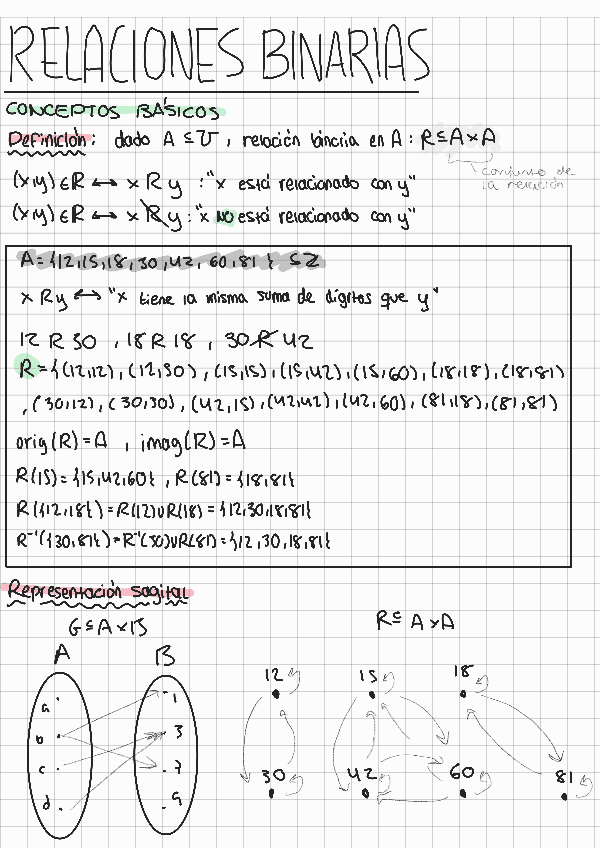 RELACIONES BINARIAS
CONCEPTOS BÁSICOS
Definición: dado A ⊆ U, relación binaria en A: R ⊆ A×A
conjunto de
la relación
(x,y) ∈ R ↔ x R y : "x está relacionado con y"
(x,y) ∈ R ↔ x R̸ y : "x NO está relacionado con y"
A = {12,15,18,30,42,60,81} ⊆ Z
x R y ↔ "x tiene la misma suma de dígitos que y"
12 R 30, 18 R 18, 30 R̸ 42
R = {(12,12), (12,30), (15,15), (15,42), (15,60), (18,18), (18,81)
, (30,12), (30,30), (42,15), (42,42), (42,60), (81,18), (81,81)
orig(R) = A, imag(R) = A
R(15) = {15,42,60}, R(81) = {18,81}
R({12,18}) = R(12) ∪ R(18) = {12,30,18,81}
R⁻¹({30,81}) = R⁻¹(30) ∪ R(81) = {12,30,18,81}
Representación sagital
G ⊆ A×B
R ⊆ A×A
A B
12 15 18
a 1
b 3
c 7
d 9
30 42 60 81